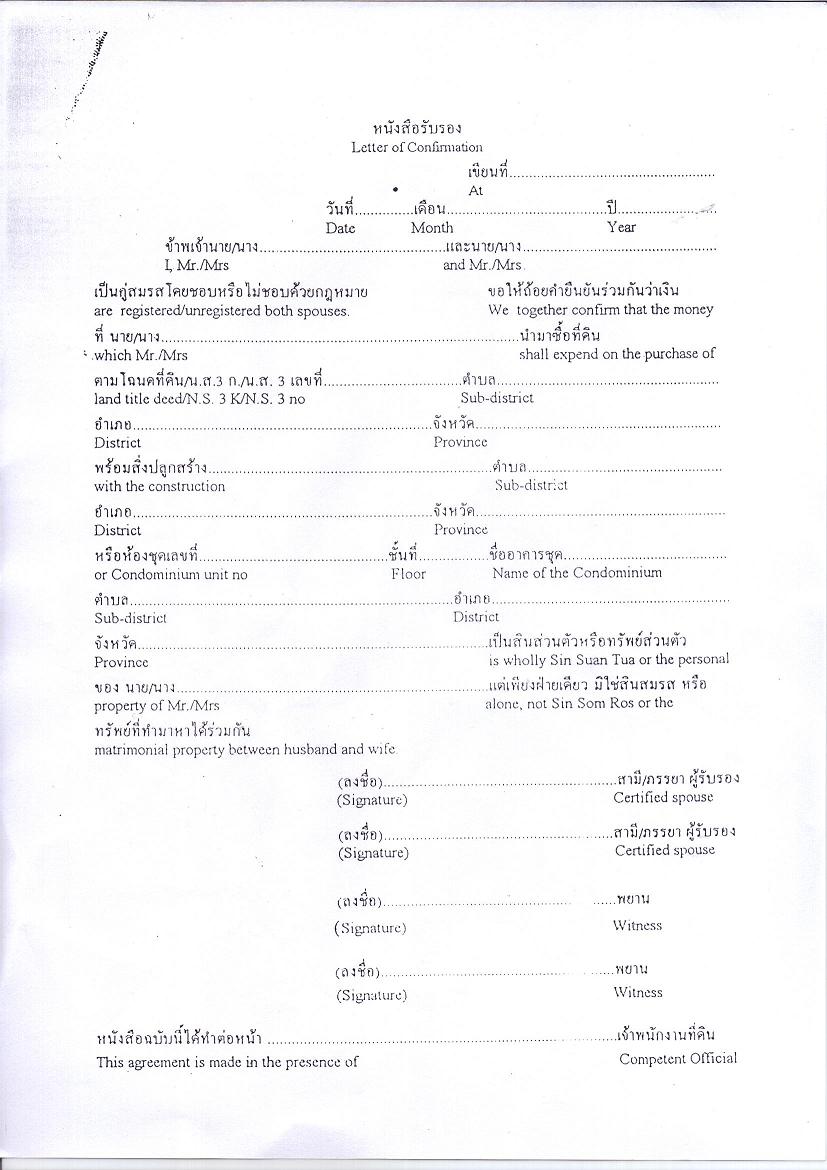 หนังสือรับรอง
Letter of Confirmation
เขียนที่........................................................
At
วันที่...............เดือน...........................................ปี..........................
Date Month Year
ข้าพเจ้านาย/นาง..................................................และนาย/นาง....................................................
I, Mr./Mrs and Mr./Mrs.
เป็นคู่สมรสโดยชอบหรือไม่ชอบด้วยกฎหมาย ขอให้ถ้อยคำยืนยันร่วมกันว่าเงิน
are registered/unregistered both spouses. We together confirm that the money
ที่ นาย/นาง...............................................................................................นำมาซื้อที่ดิน
which Mr./Mrs shall expend on the purchase of
ตามโฉนดที่ดิน/น.ส.3 ก./น.ส. 3 เลขที่.....................................ตำบล............................................................
land title deed/N.S. 3 K/N.S. 3 no Sub-district
อำเภอ................................................................................จังหวัด..................................................................
District Province
พร้อมสิ่งปลูกสร้าง..............................................................................ตำบล....................................................
with the construction Sub-district
อำเภอ................................................................................จังหวัด..................................................................
District Province
หรือห้องชุดเลขที่...................................................ชั้นที่...................ชื่ออาคารชุด............................................
or Condominium unit no Floor Name of the Condominium
ตำบล......................................................................................อำเภอ............................................................
Sub-district District
จังหวัด...............................................................................................เป็นสินส่วนตัวหรือทรัพย์ส่วนตัว
Province is wholly Sin Suan Tua or the personal
ของ นาย/นาง.....................................................................................แต่เพียงฝ่ายเดียว มิใช่สินสมรส หรือ
property of Mr./Mrs alone, not Sin Som Ros or the
ทรัพย์ที่ทำมาหาได้ร่วมกัน
matrimonial property between husband and wife.
(ลงชื่อ)................................................................สามี/ภรรยา ผู้รับรอง
(Signature) Certified spouse
(ลงชื่อ)................................................................สามี/ภรรยา ผู้รับรอง
(Signature) Certified spouse
(ลงชื่อ)................................................................พยาน
(Signature) Witness
(ลงชื่อ)................................................................พยาน
(Signature) Witness
หนังสือฉบับนี้ได้ทำต่อหน้า ................................................................................................เจ้าพนักงานที่ดิน
This agreement is made in the presence of Competent Official